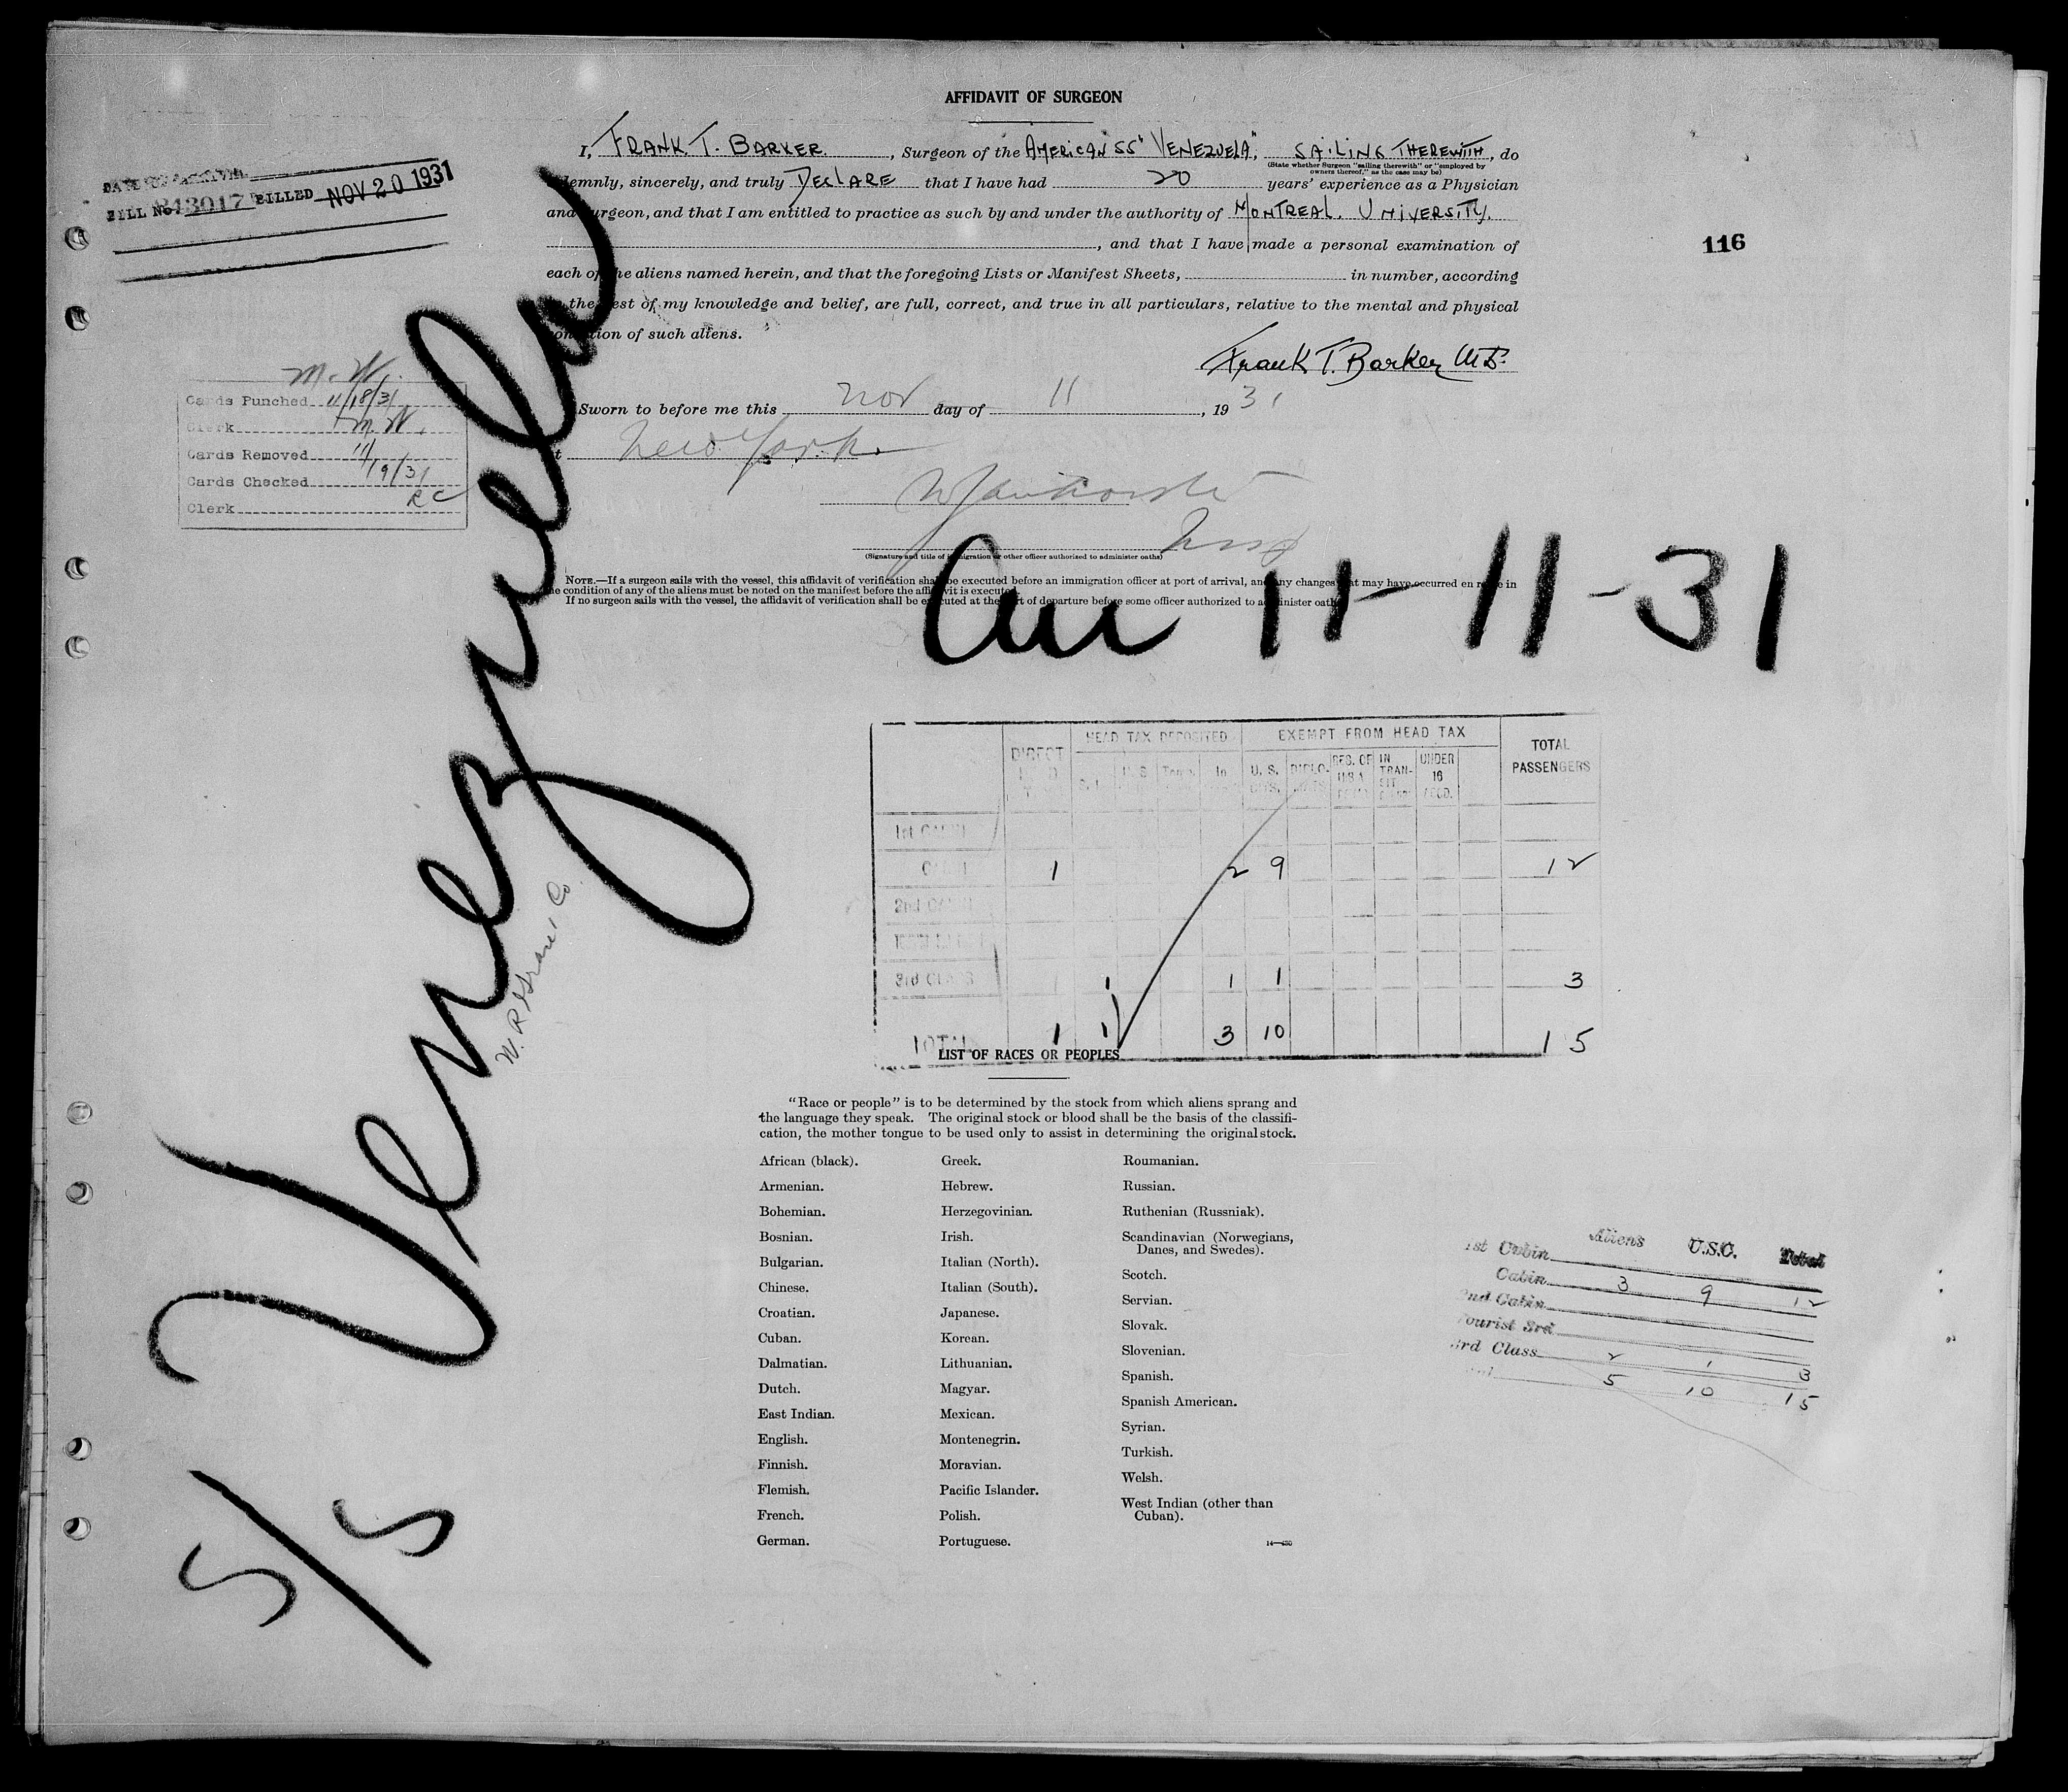 AFFIDAVIT OF SURGEON
I, FRANK. T. BARKER. , Surgeon of the AMERICAN SS "VENEZUELA", SAILING THEREWITH, do
(State whether Surgeon "sailing therewith" or "employed by
owners thereof," as the case may be)
emnly, sincerely, and truly DECLARE that I have had 20 years' experience as a Physician
and urgeon, and that I am entitled to practice as such by and under the authority of MONTREAL. UNIVERSITY.
, and that I have made a personal examination of
each of he aliens named herein, and that the foregoing Lists or Manifest Sheets, in number, according
the est of my knowledge and belief, are full, correct, and true in all particulars, relative to the mental and physical
tion of such aliens.
Frank T. Barker M.D.
Sworn to before me this Nov day of 11 , 19 31
New York.
(Signature and title of immigration or other officer authorized to administer oaths)
NOTE.—If a surgeon sails with the vessel, this affidavit of verification shall be executed before an immigration officer at port of arrival, and any changes that may have occurred en route in
the condition of any of the aliens must be noted on the manifest before the affidavit is executed.
If no surgeon sails with the vessel, the affidavit of verification shall be executed at the port of departure before some officer authorized to administer oaths.
BILL No. 343017 BILLED NOV 20 1931
116
M. W.
Cards Punched 11/18/31
Clerk M. W.
Cards Removed 11/
Cards Checked 19/31
Clerk RC
S/S Venezuela
Arr 11-11-31
DIRECT HEAD TAX DEPOSITED EXEMPT FROM HEAD TAX TOTAL PASSENGERS
U. S. DIPLO- RES. OF IN TRAN- SIT UNDER 16
1st CABIN
CABIN 1 2 9 12
2nd CABIN
3rd CLASS 1 1 1 3
TOTAL 1 1 3 10 15
LIST OF RACES OR PEOPLES
"Race or people" is to be determined by the stock from which aliens sprang and
the language they speak. The original stock or blood shall be the basis of the classifi-
cation, the mother tongue to be used only to assist in determining the original stock.
African (black).
Armenian.
Bohemian.
Bosnian.
Bulgarian.
Chinese.
Croatian.
Cuban.
Dalmatian.
Dutch.
East Indian.
English.
Finnish.
Flemish.
French.
German.
Greek.
Hebrew.
Herzegovinian.
Irish.
Italian (North).
Italian (South).
Japanese.
Korean.
Lithuanian.
Magyar.
Mexican.
Montenegrin.
Moravian.
Pacific Islander.
Polish.
Portuguese.
Roumanian.
Russian.
Ruthenian (Russniak).
Scandinavian (Norwegians,
Danes, and Swedes).
Scotch.
Servian.
Slovak.
Slovenian.
Spanish.
Spanish American.
Syrian.
Turkish.
Welsh.
West Indian (other than
Cuban).
Aliens U.S.C. Total
1st Cabin
Cabin 3 9 12
2nd Cabin
Tourist 3rd
3rd Class 2 1 3
5 10 15